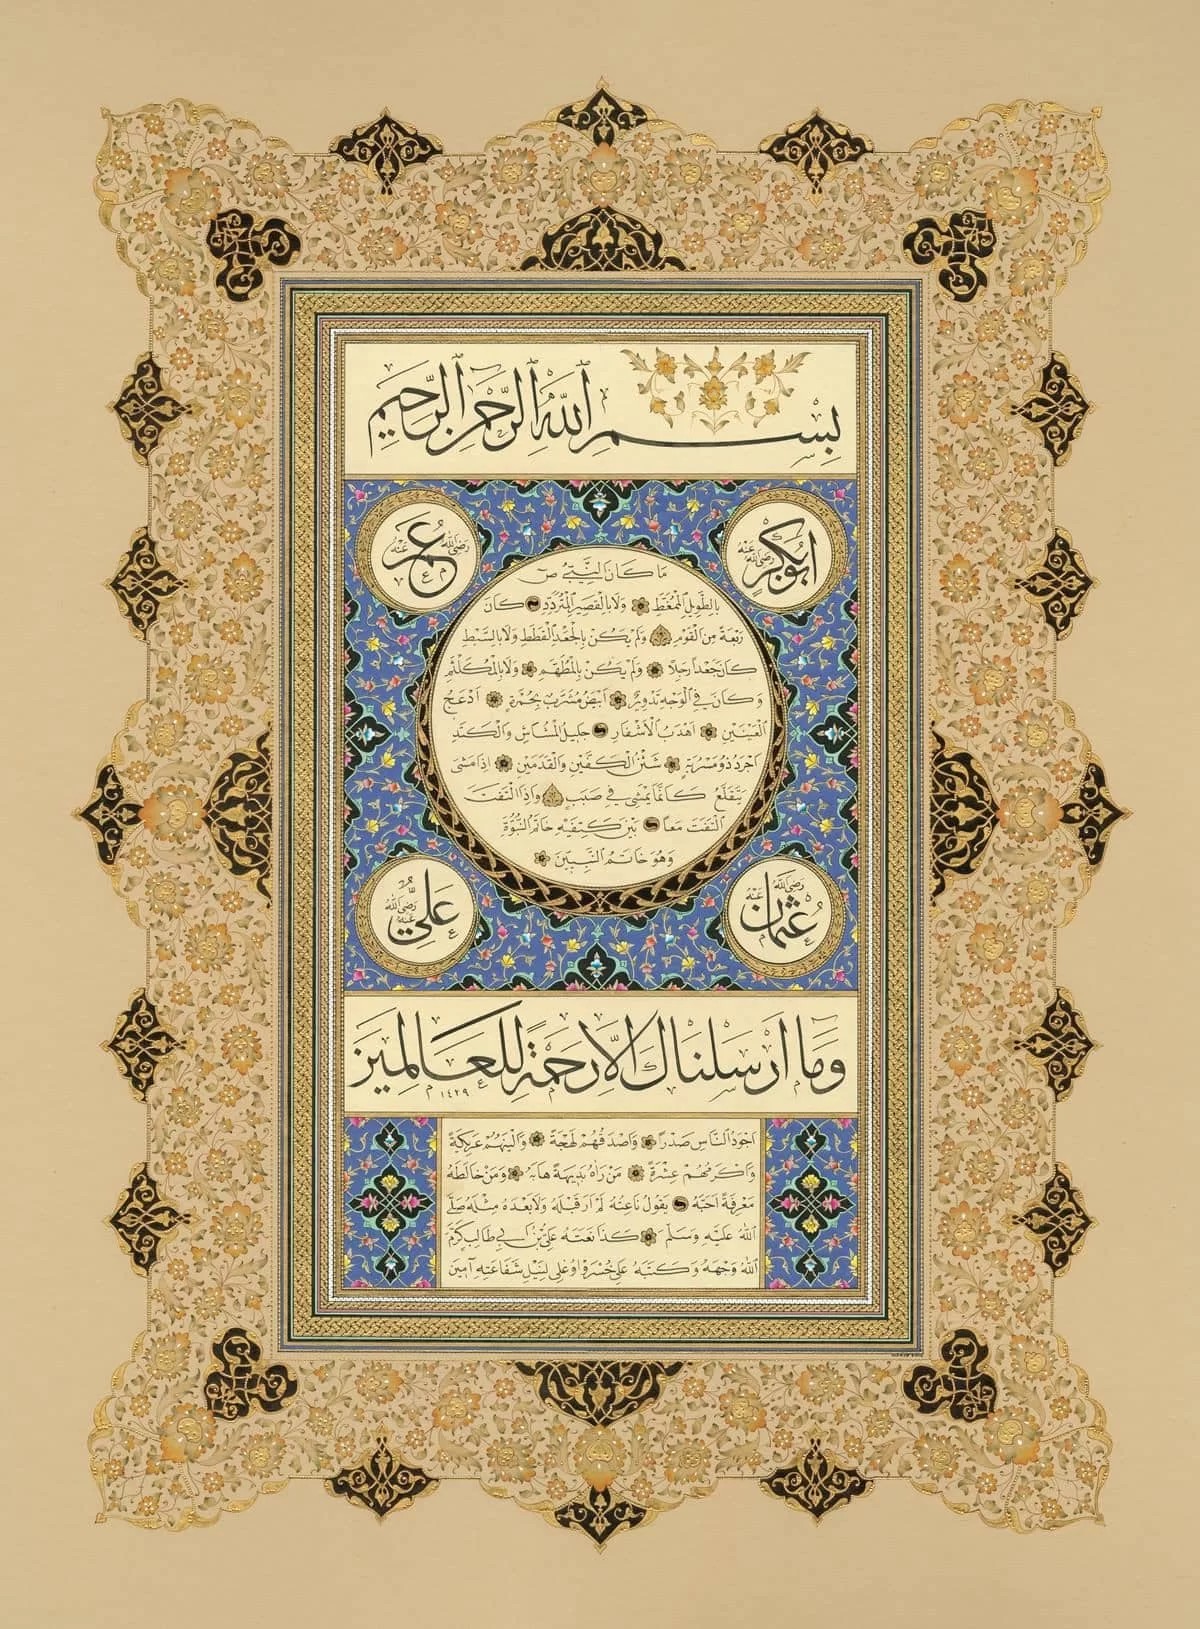 بِسْمِ اللّٰهِ الرَّحْمٰنِ الرَّحِيمِ
ابُوبَكْرٍ رَضِيَ اللّٰهُ عَنْهُ
عُمَرُ رَضِيَ اللّٰهُ عَنْهُ
مَا كَانَ النَّبِيُّ ص
بِالطَّوِيلِ الْمُمَغَّطِ وَلَا بِالْقَصِيرِ الْمُتَرَدِّدِ كَانَ
رَبْعَةً مِنَ الْقَوْمِ وَلَمْ يَكُنْ بِالْجَعْدِ الْقَطَطِ وَلَا بِالسَّبْطِ
كَانَ جَعْداً رَجِلاً وَلَمْ يَكُنْ بِالْمُطَهَّمِ وَلَا بِالْمُكَلْثَمِ
وَكَانَ فِي الْوَجْهِ تَدْوِيرٌ اَبْيَضُ مُشْرَبٌ بِحُمْرَةٍ اَدْعَجُ
الْعَيْنَيْنِ اَهْدَبُ الْاَشْفَارِ جَلِيلُ الْمُشَاشِ وَالْكَتَدِ
اَجْرَدُ ذُو مَسْرُبَةٍ شَثْنُ الْكَفَّيْنِ وَالْقَدَمَيْنِ اِذَا مَشَى
يَتَقَلَّعُ كَاَنَّمَا يَمْشِي فِي صَبَبٍ وَاِذَا الْتَفَتَ
الْتَفَتَ مَعاً بَيْنَ كَتِفَيْهِ خَاتَمُ النُّبُوَّةِ
وَهُوَ خَاتَمُ النَّبِيِّينَ
عُثْمَانُ رَضِيَ اللّٰهُ عَنْهُ
عَلِيٌّ رَضِيَ اللّٰهُ عَنْهُ
وَمَا اَرْسَلْنَاكَ اِلَّا رَحْمَةً لِلْعَالَمِينَ
١٤٢٩
اَجْوَدُ النَّاسِ صَدْراً وَاَصْدَقُهُمْ لَهْجَةً وَاَلْيَنُهُمْ عَرِيكَةً
وَاَكْرَمُهُمْ عِشْرَةً مَنْ رَاٰهُ بَدِيهَةً هَابَهُ وَمَنْ خَالَطَهُ
مَعْرِفَةً اَحَبَّهُ يَقُولُ نَاعِتُهُ لَمْ اَرَ قَبْلَهُ وَلَا بَعْدَهُ مِثْلَهُ صَلَّى
اللّٰهُ عَلَيْهِ وَسَلَّمَ كَذَا نَعَتَهُ عَلِيُّ بْنُ اَبِي طَالِبٍ كَرَّمَ
اللّٰهُ وَجْهَهُ وَكَتَبَهُ عَلِي خُسْرَوْ اُوغْلِي لِنَيْلِ شَفَاعَتِهِ آمِينَ